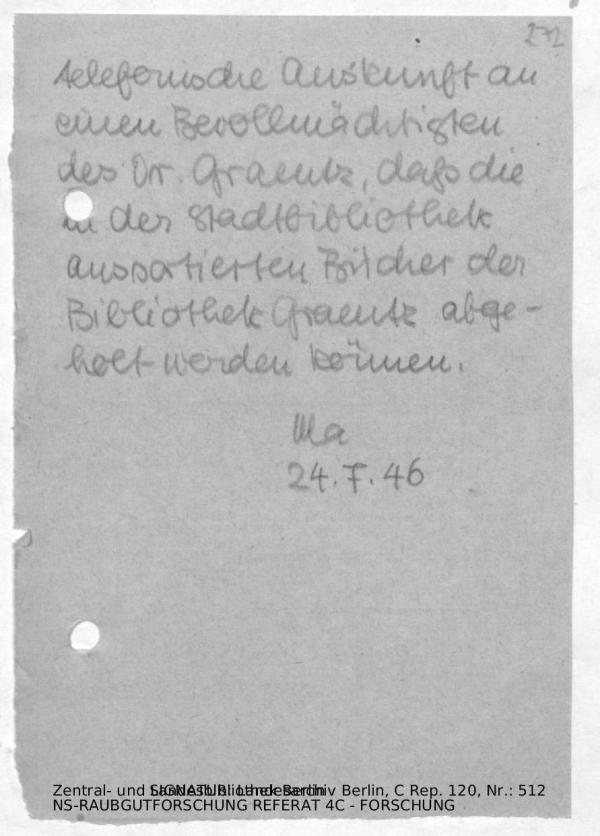 272
telefonische Auskunft an
einen Bevollmächtigten
des Dr. Graentz, daß die
in der Stadtbibliothek
aussortierten Bücher der
Bibliothek Graentz abge-
holt werden können.
Ma
24.7.46
Zentral- und Landesbibliothek Berlin
SIGNATUR: Landesarchiv Berlin, C Rep. 120, Nr.: 512
NS-RAUBGUTFORSCHUNG REFERAT 4C - FORSCHUNG